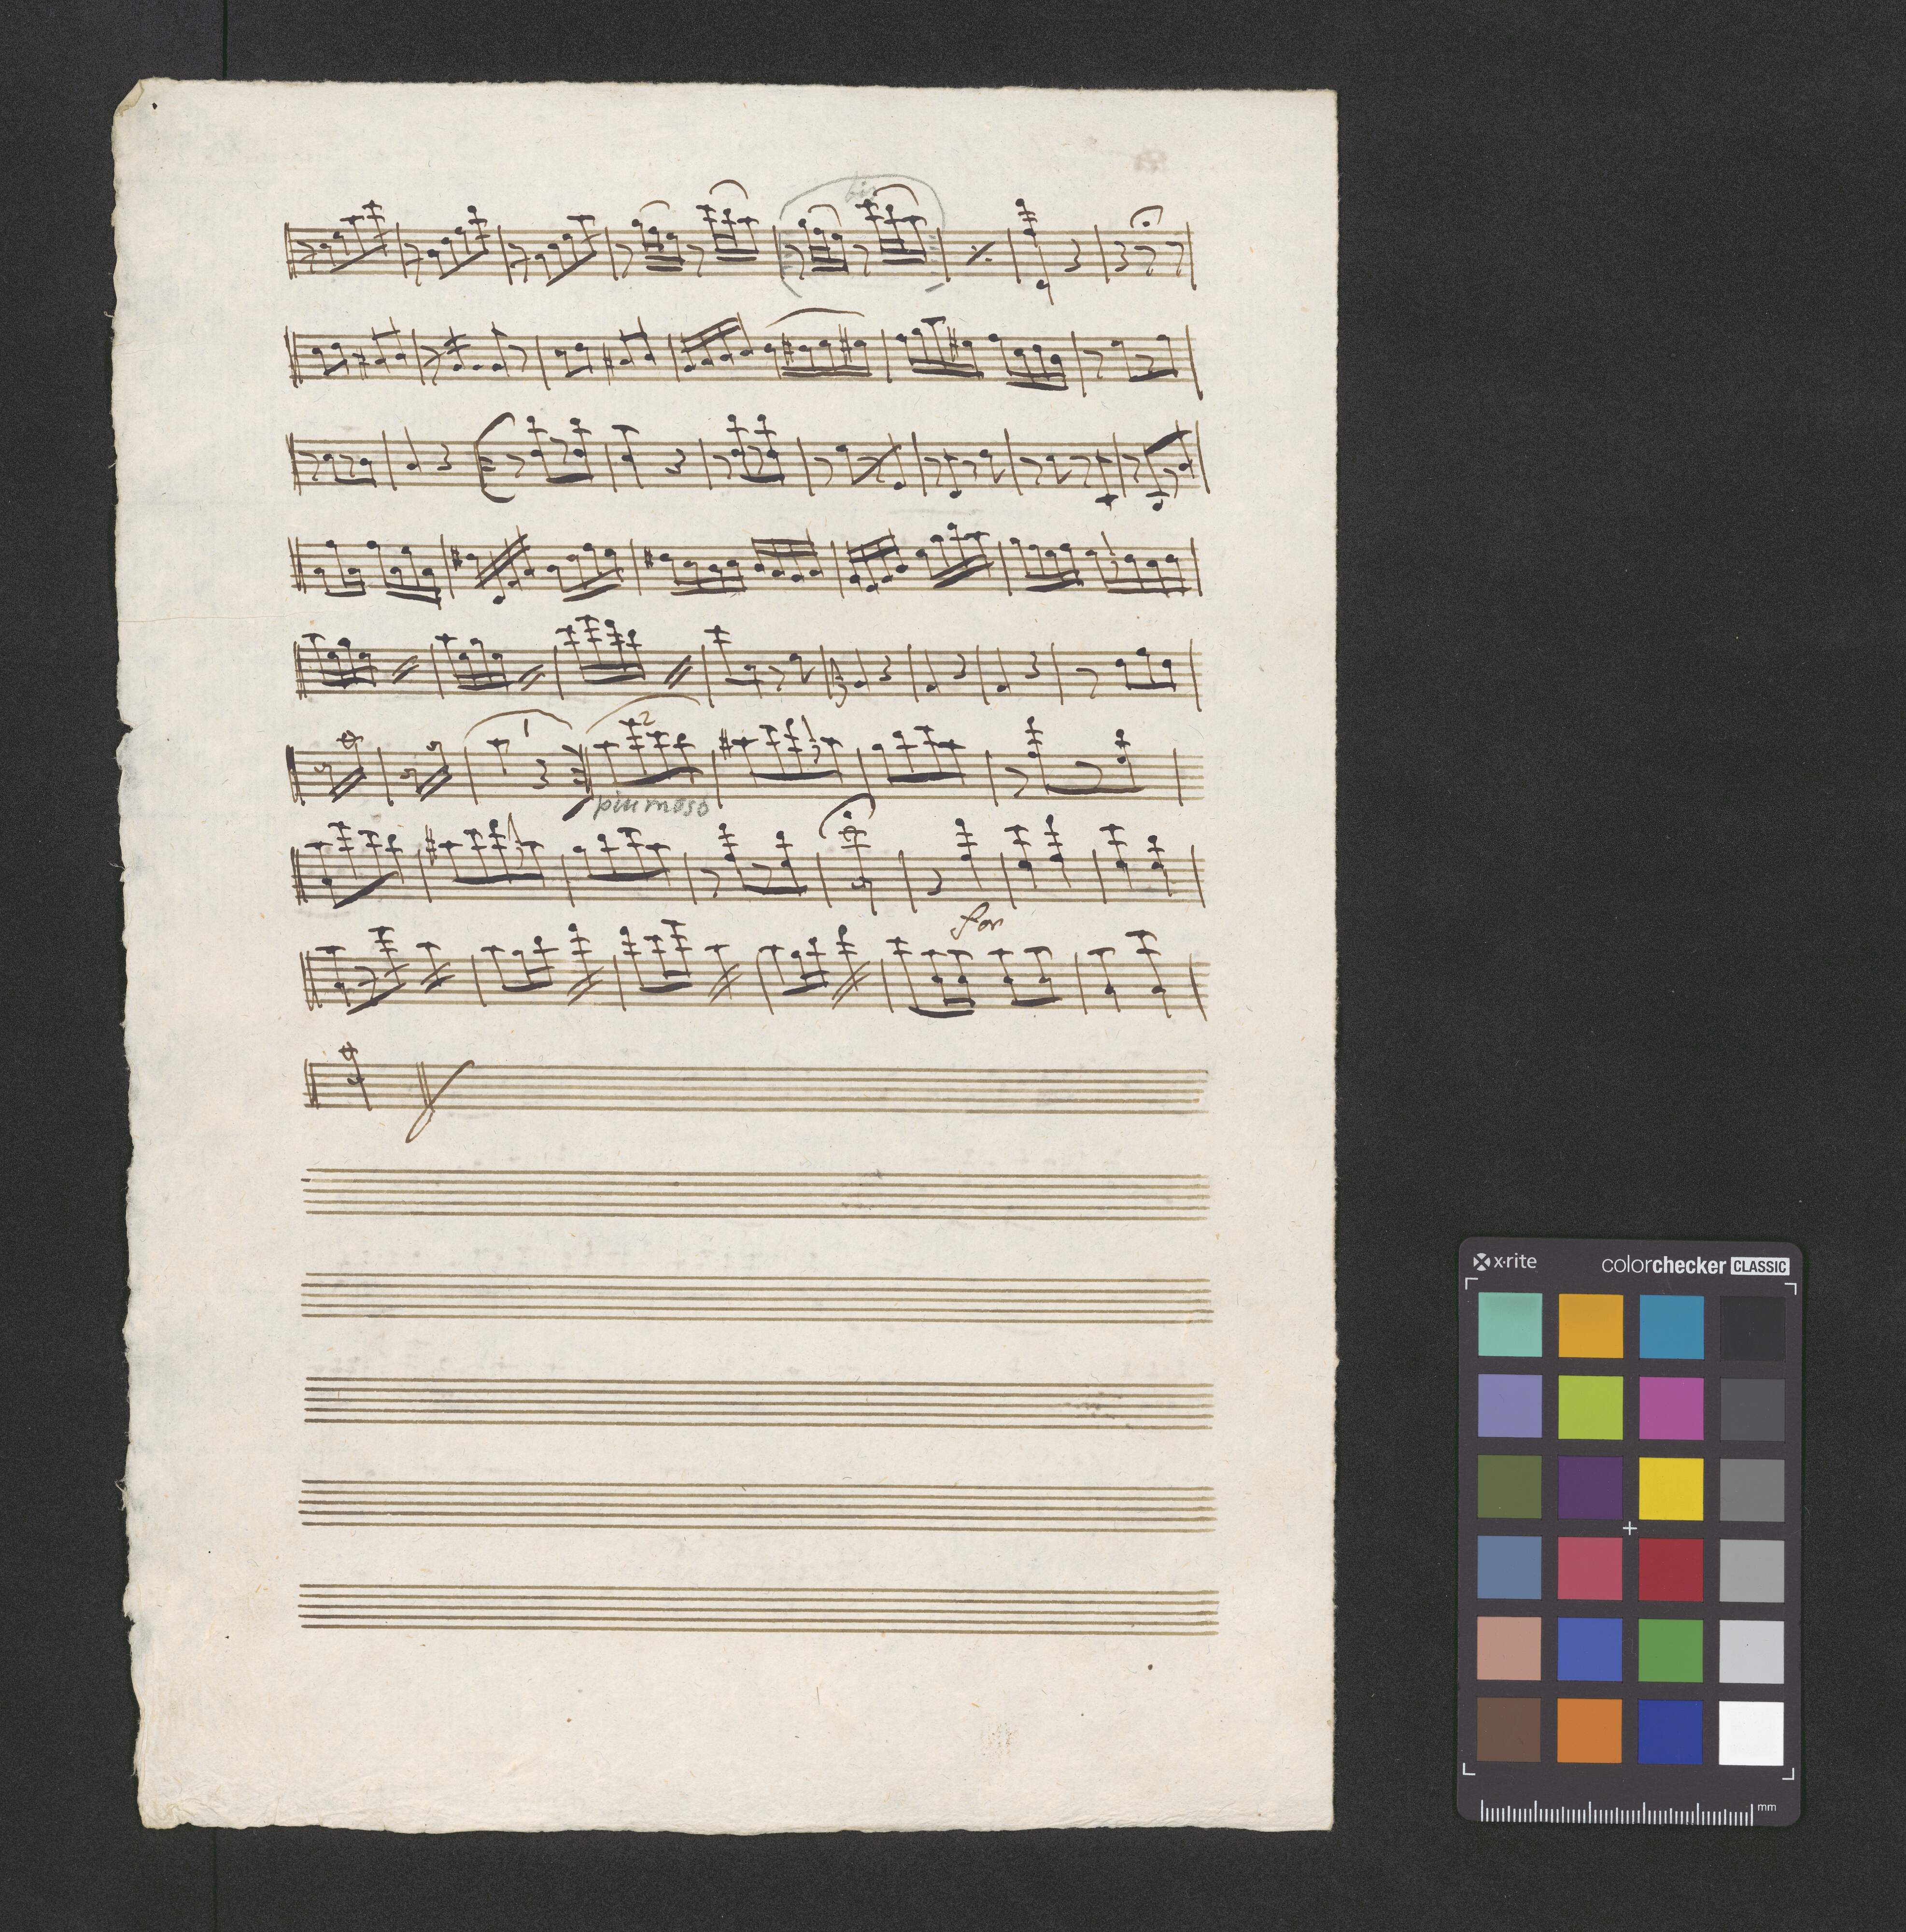 bis
1 2
piu moso
for
x·rite colorchecker CLASSIC
mm